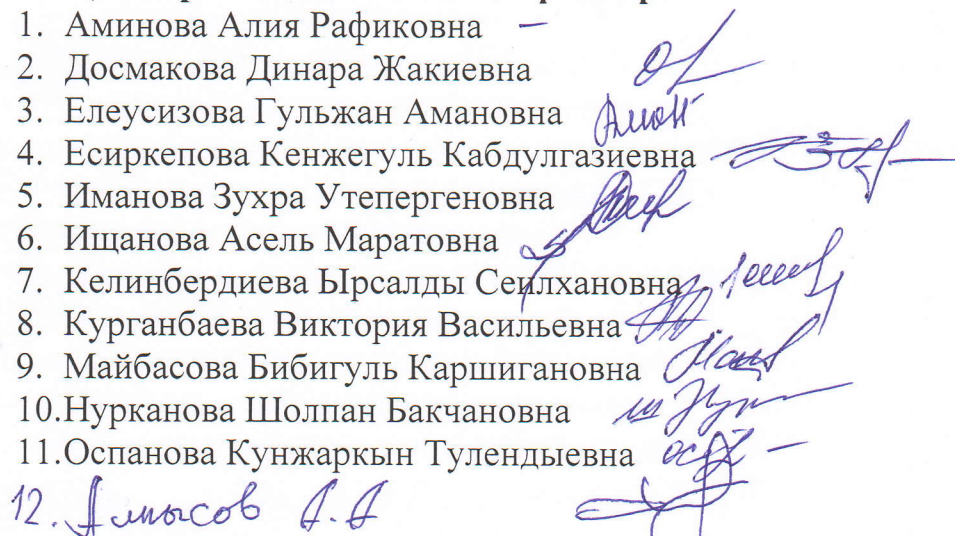 1. Аминова Алия Рафиковна –
2. Досмакова Динара Жакиевна
3. Елеусизова Гульжан Амановна
4. Есиркепова Кенжегуль Кабдулгазиевна
5. Иманова Зухра Утепергеновна
6. Ищанова Асель Маратовна
7. Келинбердиева Ырсалды Сеилхановна
8. Курганбаева Виктория Васильевна
9. Майбасова Бибигуль Каршигановна
10.Нурканова Шолпан Бакчановна
11.Оспанова Кунжаркын Тулендыевна
12. А.А